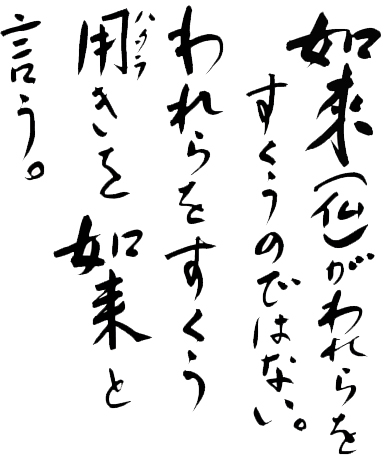 如来(仏)がわれらを
すくうのではない。
われらをすくう
用きを如来と
ハタラ
言う。